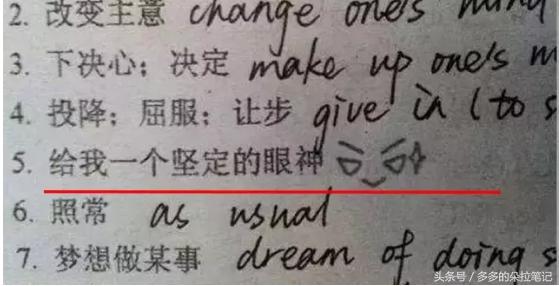 2. 改变主意 change one's mind
3. 下决心；决定 make up one's m
4. 投降；屈服；让步 give in (to s
5. 给我一个坚定的眼神
6. 照常 as usual
7. 梦想做某事 dream of doing s
头条号 / 多多的朵拉笔记